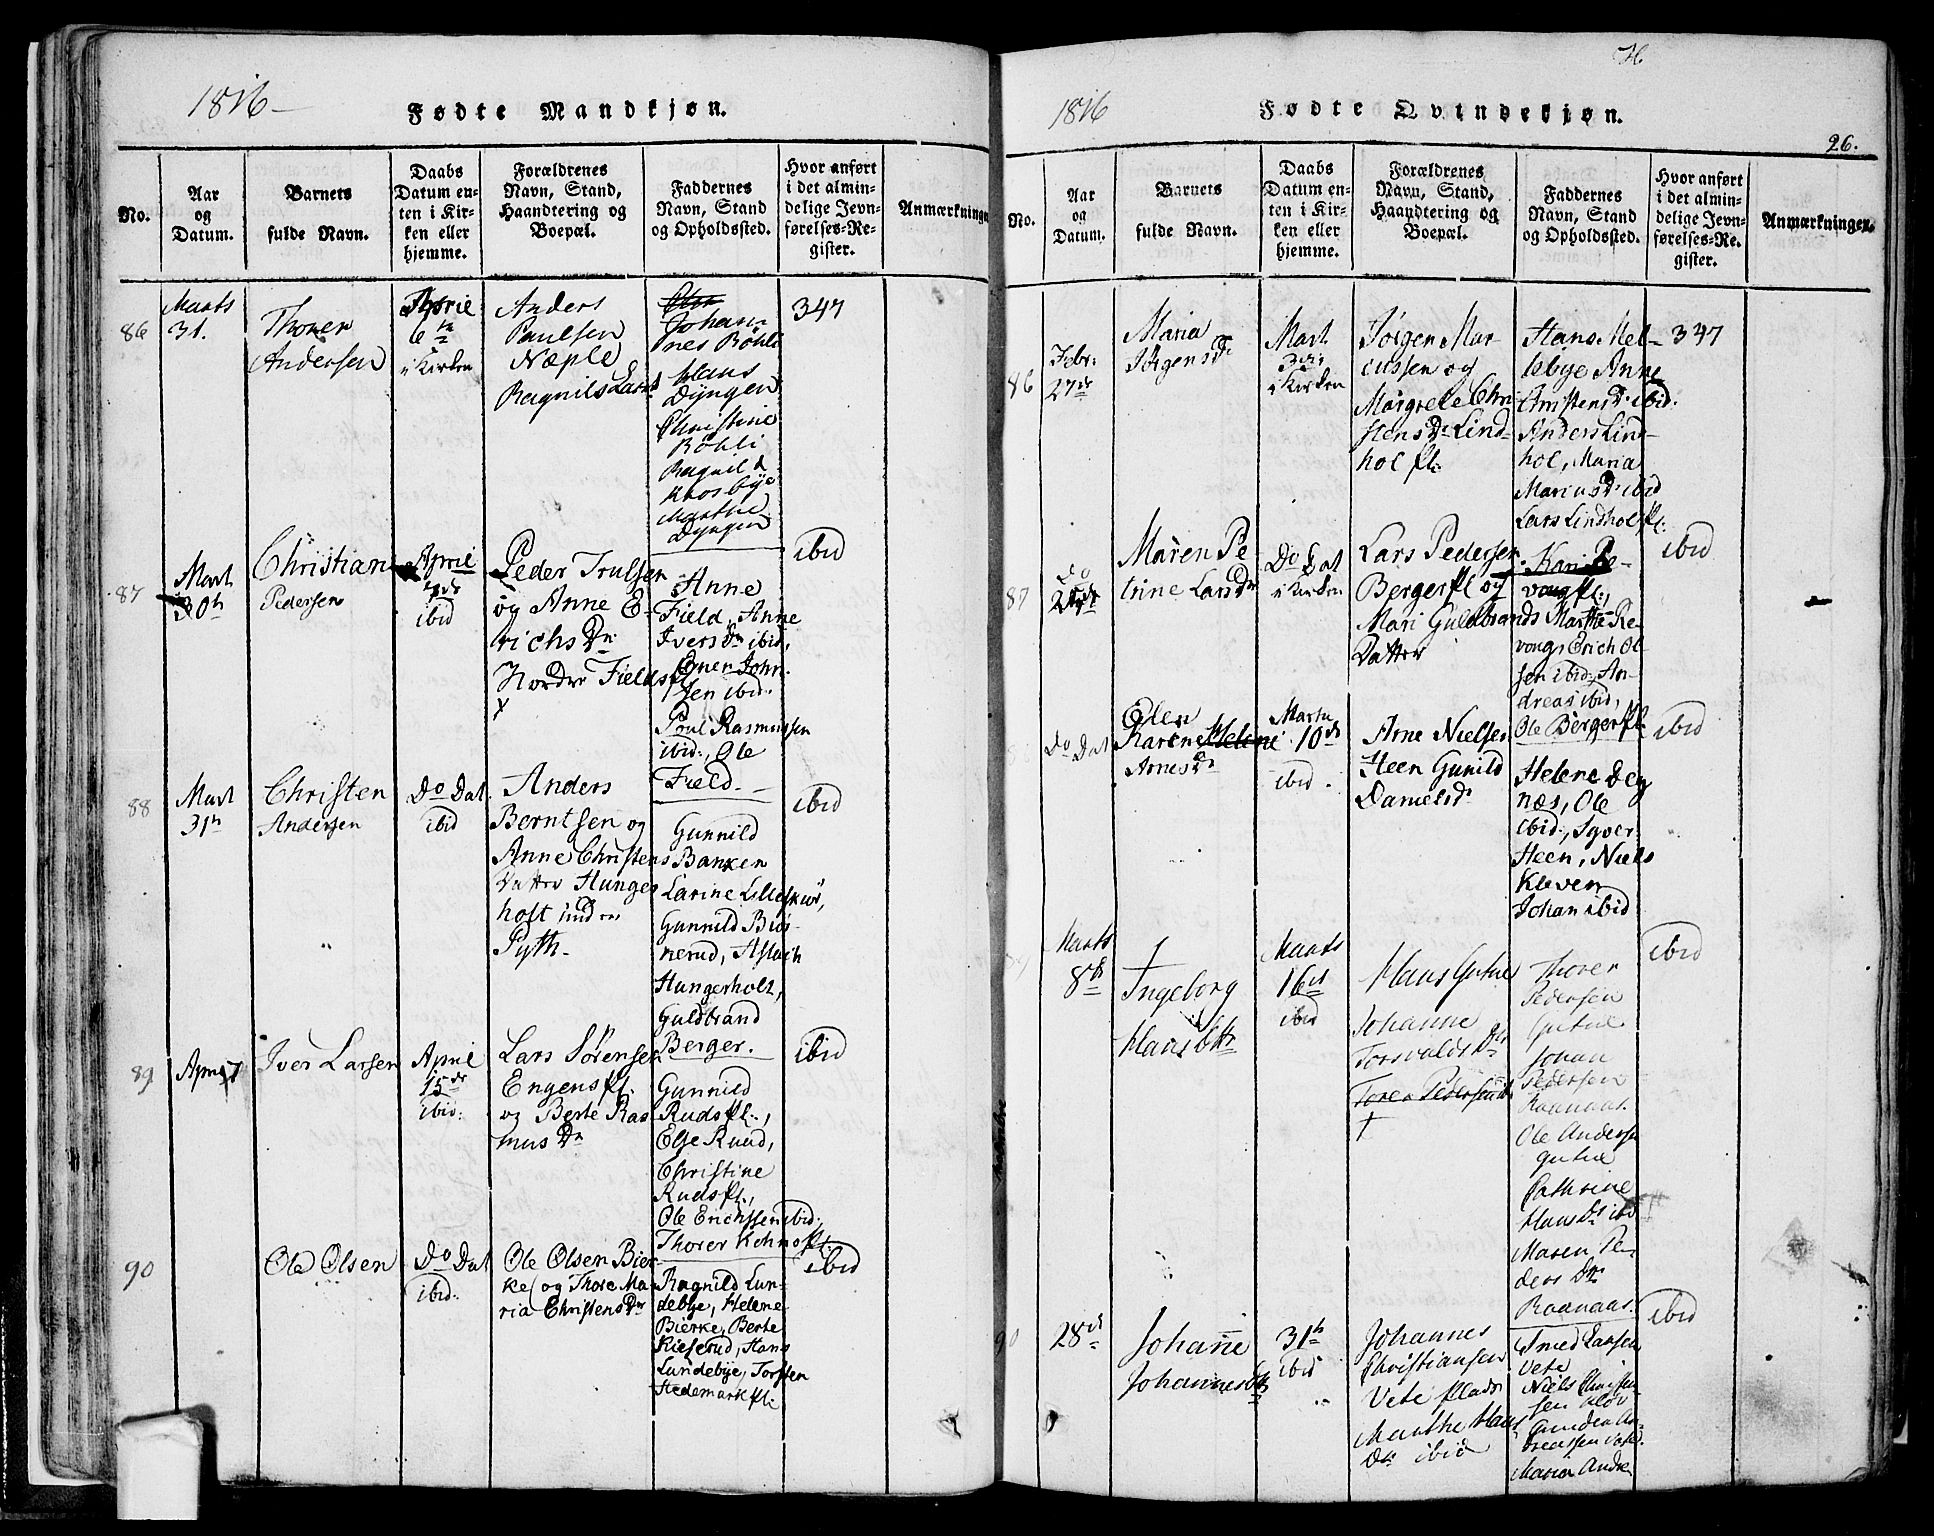 1816
Fødte Mandkjøn.
No.
Aar
og
Datum.
Barnets
fulde Navn.
Daabs
Datum en-
ten i Kir-
ken eller
hjemme.
Forældrenes
Navn, Stand,
Haandtering og
Boepæl.
Faddernes
Navn, Stand
og Opholdssted.
Hvor anført
i det almin-
delige Jevn-
førelses-Re-
gister.
Anmærkninger
86
Marts
31.
Thorer
Andersen
Aprie
6te
i Kirken
Anders
Paulsen
Næple
Ragnil Lars
Johan-
nes Böhli
Hans
Dÿngen
Christine
Böhli
Ragnild
Dÿngen
347
87
Mart
30th
Christian
Pedersen
Aprie
ibid
Peder Trulsen
og Anne E-
richs Dn
Nordre Fieldsfl
Anne
Field, Anne
Ivers Dn ibid,
Ener John-
sen ibid.
Poul Rasmussen
ibid:, Ole
Field.
ibid
88
Mart
31th
Christen
Andersen
Do Dat
ibid
Anders
Berntsen og
Anne Christens
Datter Hunger
holt under
Pyth.
Gunnild
Banken
Larine Lilleskiör,
Gunnild Biör-
nerud, Aslach
Hungerholt,
Guldbrand
Berger.
ibid
89
April 7
Iver Larsen
April
15de
ibid:
Lars Sörensen
Engensfl.
og Berte Ras
mus Dn
Gunnild
Rudsfl.,
Else Ruud,
Christine
Rudsfl.,
Ole Erichssen ibid;
Thorer
ibid
90
Ole Olsen
Do Dat
ibid:
Ole Olsen Bier-
ke og Thore Ma-
ria Christens Dn
Ragnild Lun-
debye, Helene
Bierke, Berte
Kieserud, Hans
Lundebye, Torsten
Hedemark fl.
ibid
1816
Fødte Qvindekjøn.
26.
No.
Aar
og
Datum.
Barnets
fulde Navn.
Daabs
Datum en-
ten i Kir-
ken eller
hjemme.
Forældrenes
Navn, Stand,
Haandtering og
Boepæl.
Faddernes
Navn, Stand
og Opholdssted.
Hvor anført
i det almin-
delige Jevn-
førelses-Re-
gister.
Anmærkninger.
86
Febr:
27de
Maria
Jörgensd
Mart
3die
i Kirken
Jörgen Mar-
cussen og
Margrete Chri
stens Dn Lind-
hol fl.
Hans Mel-
lebye Anne
Christens D. ibid.
Anders Lind-
hol, Maria
Marius D. ibid
Lars Lindhol fl.
347
87
Do
Maren Pe
trine Lars Dn
Do Dat
i Kirken
Lars Pedersen
Berger fl og
Mari Guldbrands
Datter
Kari Re-
vaug fl.,
Marthe Re-
vaug, Erich Ol
sen ibid, An-
dreas ibid,
Ole Berger fl.
ibid
Do Dat
Elen
Karen Helene
Arnes Dn
Marts
10de
ibid.
Arne Nielsen
Heen Gunild
Daniels D
Helene Deg
næs, Ole
ibid:, Syver
Heen, Niels
Kleven
Johan ibid
ibid
Marts
8de
Ingeborg
Hans Dtr
Marts
16de
ibid
Hans Gutue
Johanne
Torvalds Dtr
Tore Pedersen
Thorer
Pedersen
Gutue
Johan
Pedersen
Raanaas
Ole Anders
Gutue
Cathrine
Hans Dtr ibid
Maren Pe
ders Dtr
Raanaas
ibid
90
28de
Johanne
Johannes Dtr
31th
ibid
Johannes
Christiansen
Vete plads
Marthe Hans
Dtr ibid
Smed Larsen
Vete
Niels Christen
sen
Maria Andre
ibid